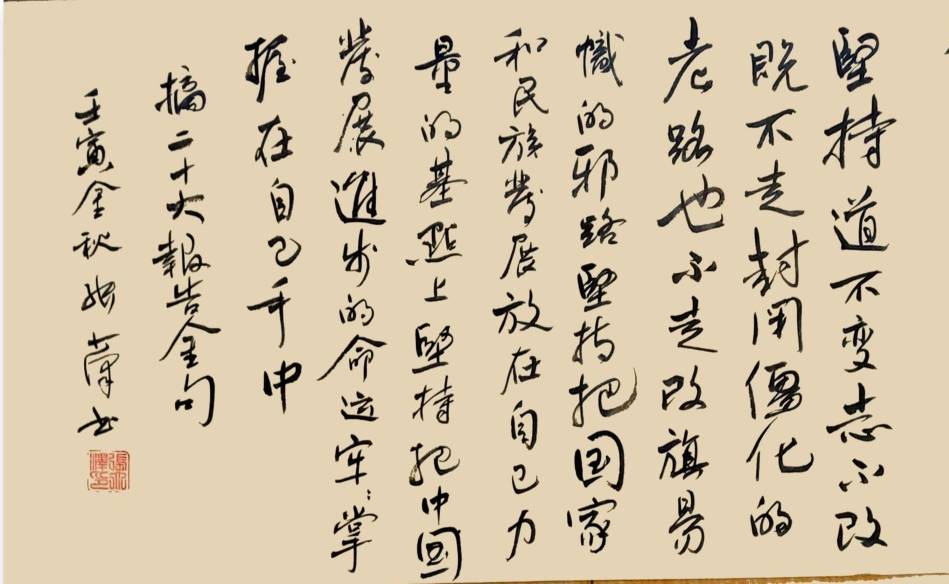 堅持道不变志不改
既不走封闭僵化的
老路也不走改旗易
幟的邪路堅持把国家
和民族發展放在自己力
量的基點上堅持把中國
發展進步的命运牢牢掌
握在自己手中
摘二十大報告金句
壬寅金秋 书